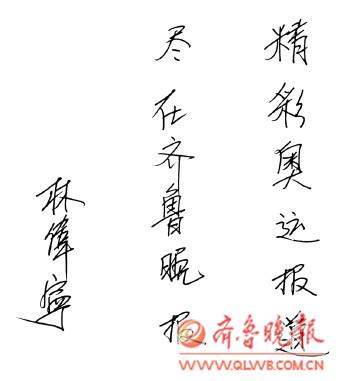 精彩奥运报道
尽在齐鲁晚报
林伟宁
齐鲁晚报
WWW.QLWB.COM.CN